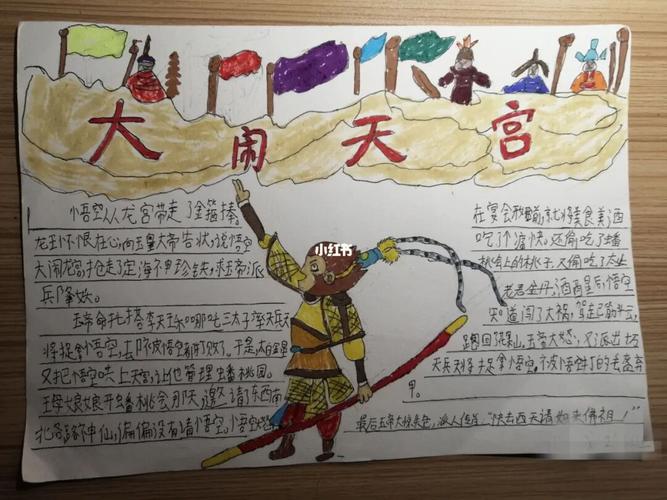 大闹天宫
悟空从龙宫带走了金箍棒,
龙王怀恨在心,向玉皇大帝告状,说悟空
大闹龙宫,抢走了定海神珍铁,求玉帝派
兵降妖。
玉帝命托塔李天王和哪吒三太子率天兵天
将捉拿悟空,去不悟空打败了。于是,太白金星
又把悟空哄上天宫,让他管理蟠桃园。
王母娘娘开蟠桃会那天,邀请了东西南
北各路神仙,偏偏没有请悟空,悟空
小红书
在宴会就将美食美酒
吃了个痛快,还偷吃了蟠
桃会上的桃子,又偷吃了太上
老君金丹,酒醒后,悟空
知道闯了大祸,驾起筋斗云,
跑回花果山,玉帝大怒,又派出
天兵天将捉拿悟空,被悟空打的丢盔弃
甲。
最后玉帝大惊失色,派人传旨:"快去西天请如来佛祖!"